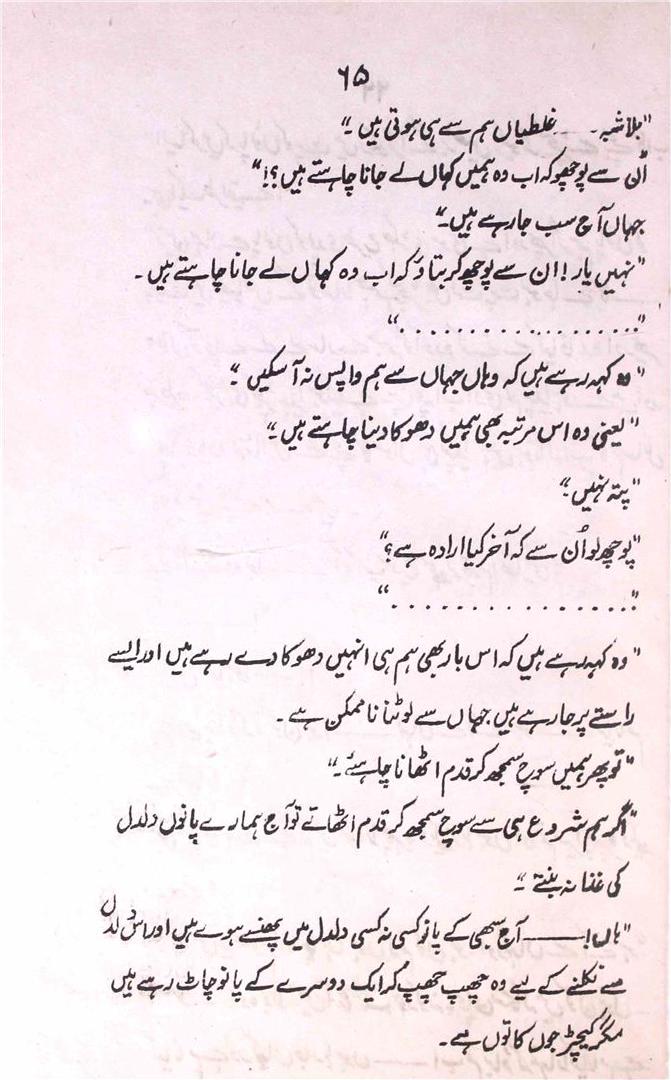 ۶۵
"بلاشبہ۔ ۔۔۔۔ غلطیاں ہم سے ہی ہوتی ہیں۔"
اُن سے پوچھو کہ اب وہ ہمیں کہاں لے جانا چاہتے ہیں؟!"
جہاں آج سب جا رہے ہیں۔"
"نہیں یار! ان سے پوچھ کر بتاؤ کہ اب وہ کہاں لے جانا چاہتے ہیں۔
"................."
"وہ کہہ رہے ہیں کہ وہاں جہاں سے ہم واپس نہ آسکیں۔"
"یعنی وہ اس مرتبہ بھی ہمیں دھوکا دینا چاہتے ہیں۔"
"پتہ نہیں۔"
"پوچھ لو اُن سے کہ آخر کیا ارادہ ہے؟"
"................"
"وہ کہہ رہے ہیں کہ اس بار بھی ہم ہی انہیں دھوکا دے رہے ہیں اور ایسے
راستے پر جا رہے ہیں جہاں سے لوٹنا ناممکن ہے۔
"تو پھر ہمیں سوچ سمجھ کر قدم اٹھانا چاہئے۔"
"اگر ہم شروع ہی سے سوچ سمجھ کر قدم اٹھاتے تو آج ہمارے پانوں دلدل
کی غذا نہ بنتے۔"
"ہاں!۔۔۔۔ آج سبھی کے پانو کسی نہ کسی دلدل میں پھنسے ہوے ہیں اور اس دلدل
سے نکلنے کے لیے وہ چھپ چھپ کر ایک دوسرے کے پانو چاٹ رہے ہیں
مگر کیچڑ جوں کا توں ہے۔